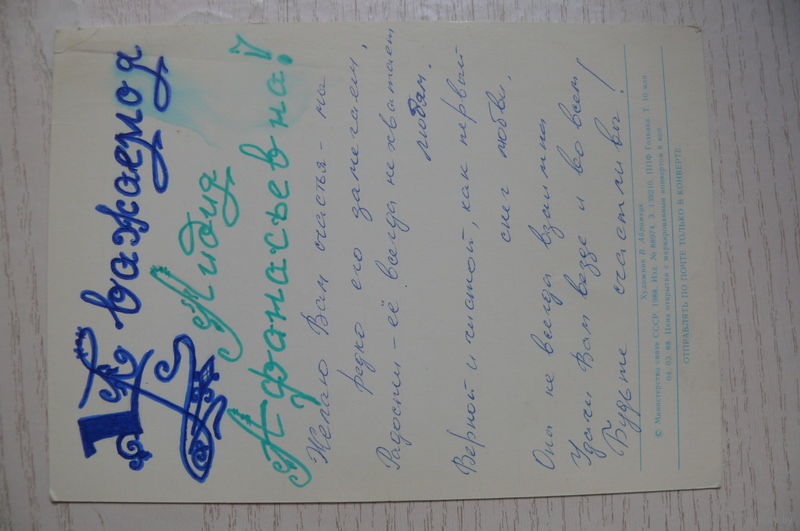 Уважаемая
Лидия
Афанасьевна!
Желаю Вам счастья - на
редко его замечаем,
Радости - её всегда не хватает
людям.
Верной и чистой, как первый
снег любви,
Она не всегда взаимна
Удачи Вам везде и во всем
Будьте счастливы!
Художник В. Абрамцев
© Министерство связи СССР. 1988. Изд. № 88074. З. 139210. ППФ Гознака. Т. 10 млн.
04. 03. 88. Цена открытки с маркированным конвертом 8 коп.
ОТПРАВЛЯТЬ ПО ПОЧТЕ ТОЛЬКО В КОНВЕРТЕ